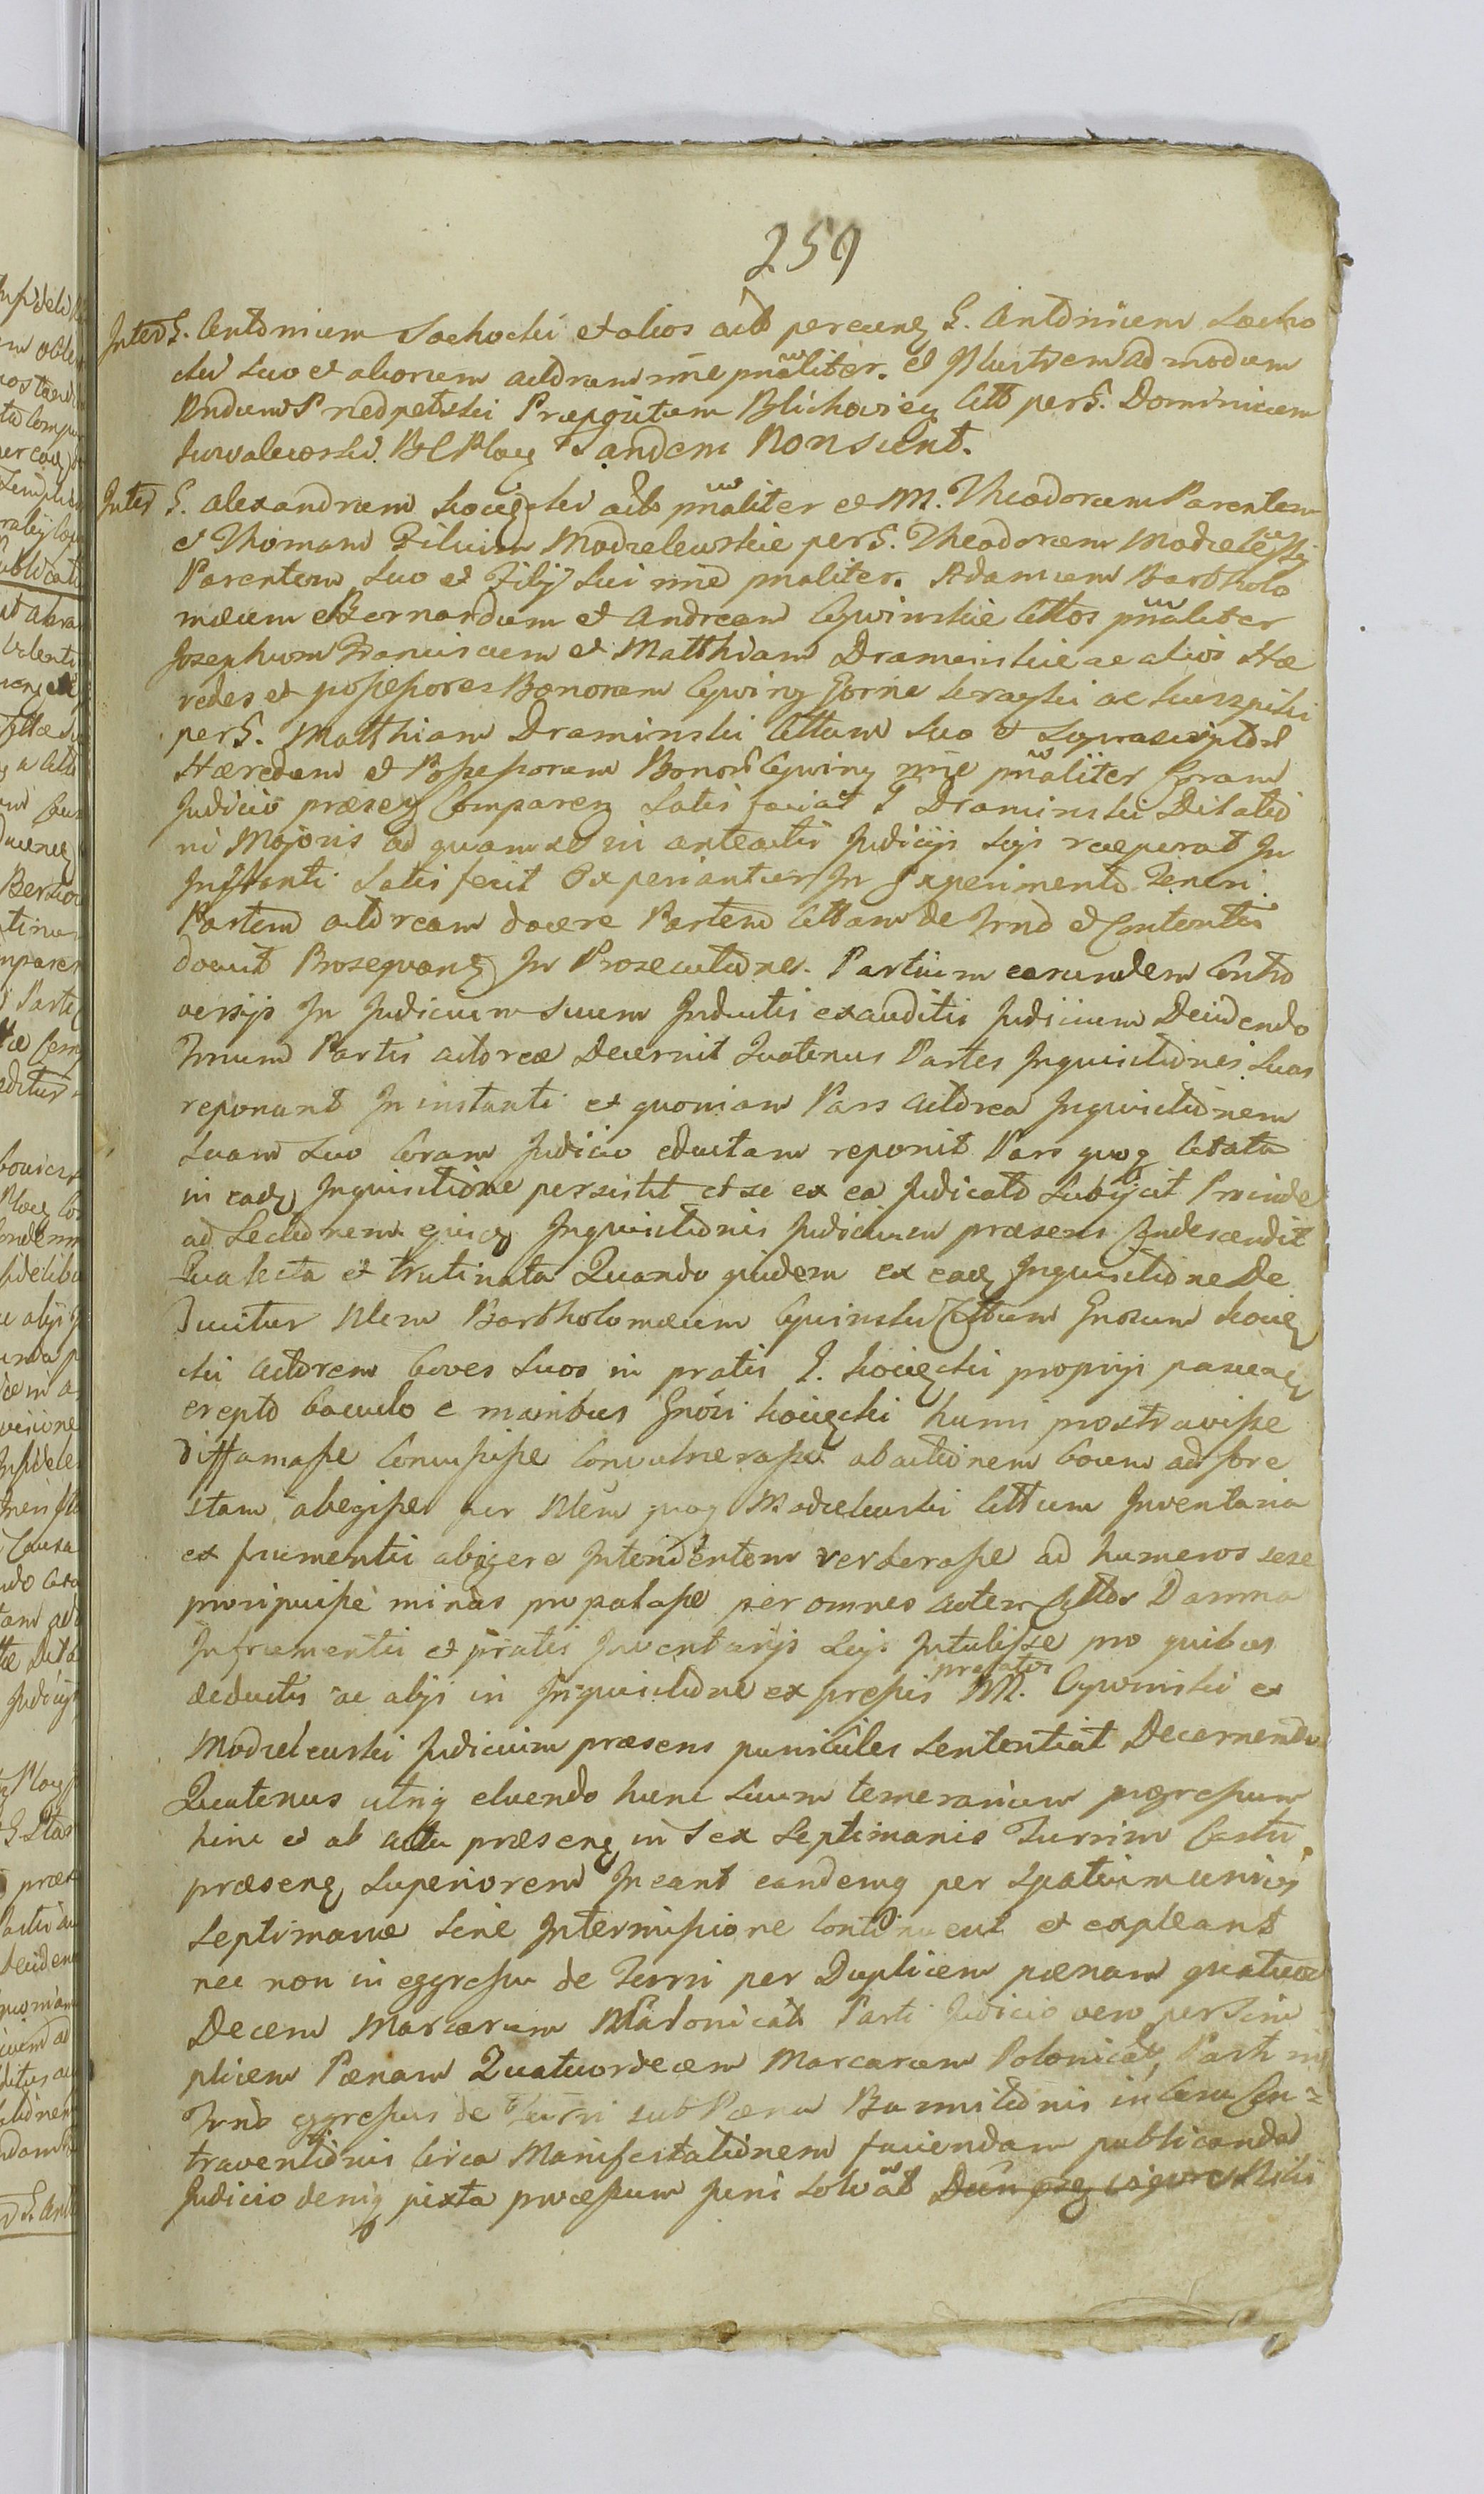 259
Inter G. Antonium Sochocki et alios actō per eunꝗ G. Antonium Socho
cki suo et aliorum actorum nn̄e pn̄aliter. et Illustrem admodum
Rndum Przedpełski Præpositum Blichovieñ Citt per G. Dominicum
Suwalewski BCPloceñ tandem Non sient.
Inter G. Alexandrum Kociecki actō pn̄aliter et M. Theodorum Parentem
et Thomam Filium Modzelewskie per G. Theodorum Modzelewski
Parentem suo et Filij sui nn̄e pn̄aliter. Adamum Bartholo
mæum Bernardum et Andream Cywinskie Cittos pn̄aliter
Josephum Franciscum et Matthiam Draminskie ac alios Hæ
redes et possessores Bonorum Cywiny Gorne
per G. Matthiam Draminski Cittum suo et suprascriptor
Hæredum et Possessorum Bonor Cywiny nn̄e pn̄aliter Coram
Judicio præseñ Compareñ Satis faciat G Draminski Dilatio
ni Majoris ad quam in anteactis Judicijs sibi receperat In
Instanti satis fecit Experiantur In Experimento Teneri
Partem actoream docere Partem Cittam de Trno et Contentis
docuit Prosequanꝗ In Prosecutione. Partium earundem Contro
versijs In Judicium suum Inductis exauditis Judicium Decidendo
Trnum Partis actoreæ Decernit Quatenus Partes Inquisitiones suas
reponant In instanti et quoniam Pars actorea Inquisitionem
suam suo Coram Judicio eductam reponit Pars quoꝗ Citata
in eadꝫ Inquisitione persistit et se ex ea Judicato subijcit Proinde
ad Lectionem ejusꝗ Inquisitionis Judicium præsens Condescendit
Qua lecta et trutinata Quando quidem ex eadꝫ Inquisitione De
ducitur Nlem Bartholomæum Cywinski Cittum Gnosum Kocieꝗ
cki actorem boves suos in pratis G. Kociecki proprijs pascenꝗ
erepto baculo e manibus Gnosi Kociecki humi prostravisse
diffamasse Concussisse Convulnerasse ab actionem boum ad fore
stam abegisse per Nlem quoꝗ Modzelewski Cittum Inventaria
ex frumentis abigere Intendentem verberasse ad humeros sese
proripuisse minas propalasse per omnes autem Cittos Damna
In frumentis et pratis Inventarijs suis Intulisse pro quibus
deductis ac alijs in Inquisitione expressis præfatos NN. Cywinski et
Modzelewski Judicium præsens punibiles sententiat Decernendo
Quatenus utriꝗ eluendo hunc suum temerarium progressum
hinc et ab actu præsenꝗ in sex Septimanis Turrim Castri
præsenꝗ superiorem Ineant eandemꝗ per spatium unius
Septimanæ sine Intermissione Continuent et expleant
nec non in eggressu de Turri per Duplicem pœnam quatuor
Decem Marcarum Polonicaƚ Parti Judicio vero per sim
plicem Pœnam Quatuordecem Marcarum Polonicaƚ Parti in
Trno eggressus de Turri sub Pœna Bannitionis in Casu Con=
traventionis Circa Manifestationem faciendam publicanda
Judicio deniꝗ juxta processum Juri solvat